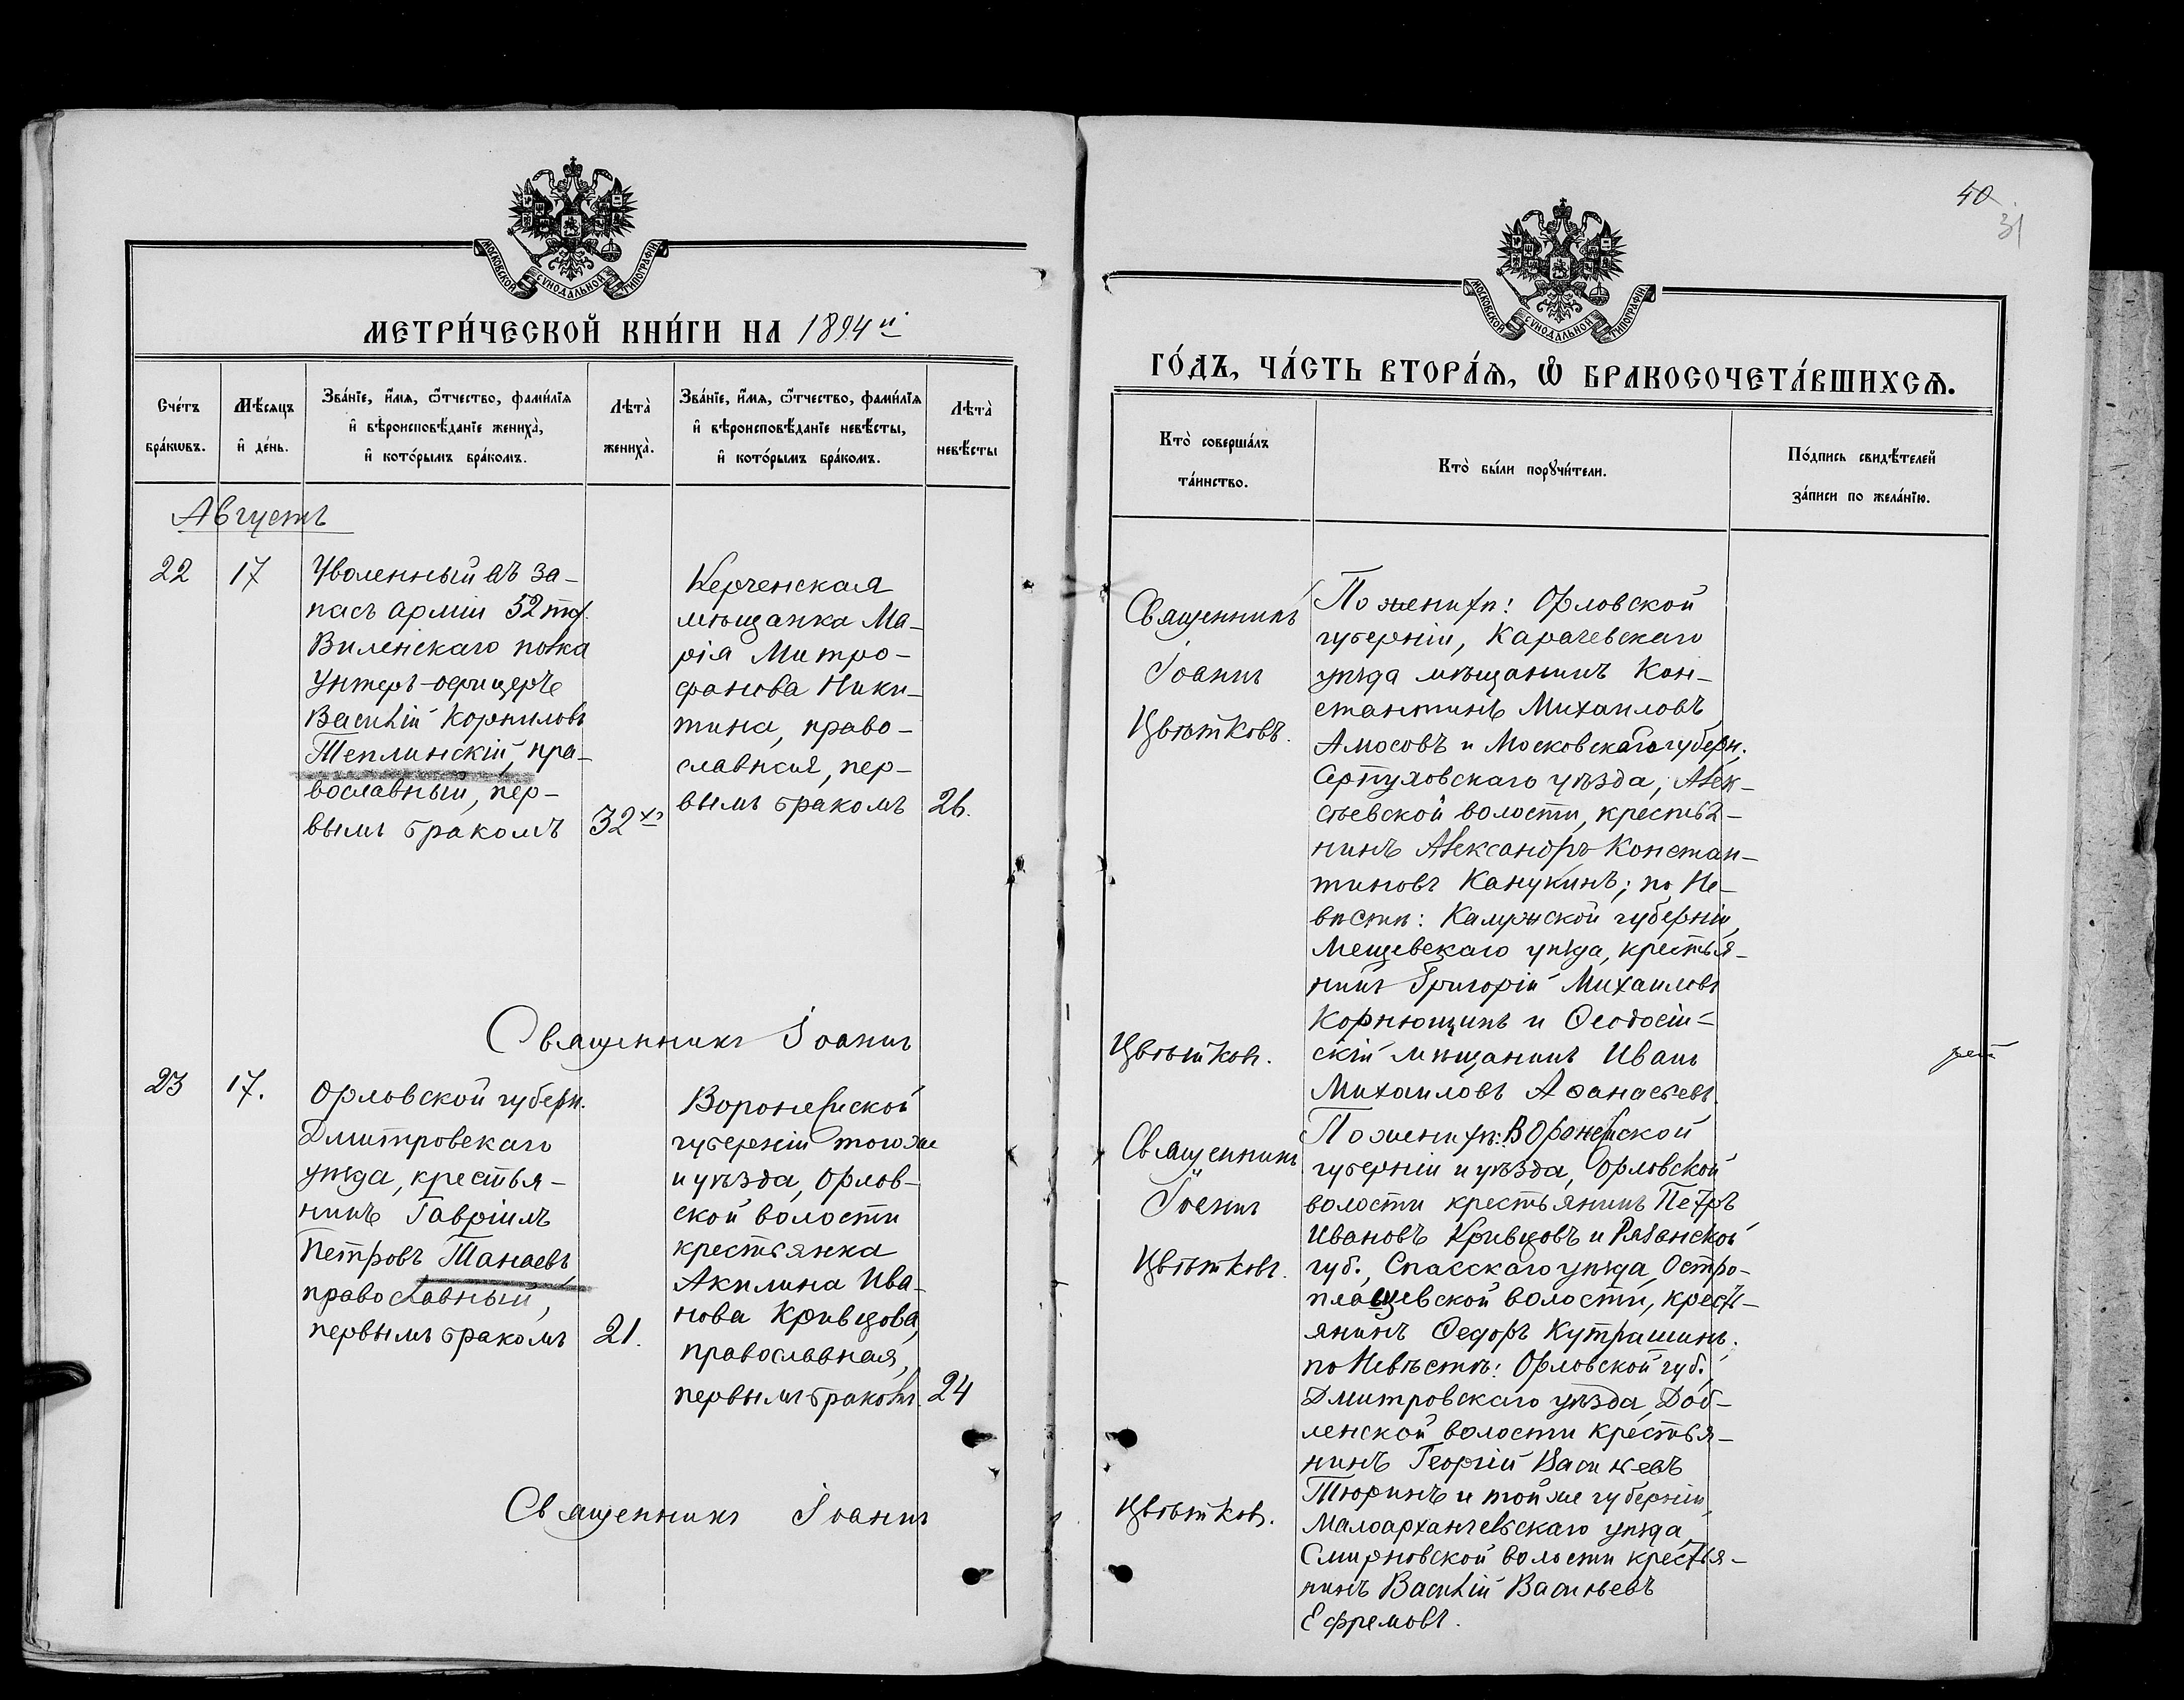 МОСКОВСКОЙ СѴНОДАЛЬНОЙ ТИПОГРАФІИ
МЕТРИ́ЧЕСКОЙ КНИ́ГИ НА 1894й
Сче́тъ бра́кѡвъ.
Мѣ́сяцъ и҆ де́нь.
Зва́нїе, и҆́мѧ, ѻ҆́тчество, фами́лїѧ
и҆ вѣроисповѣ́данїе жениха̀,
и҆ кото́рымъ бра́комъ.
Лѣта̀ жениха̀.
Зва́нїе, и҆́мѧ, ѻ҆́тчество, фами́лїѧ
и҆ вѣроисповѣ́данїе невѣ́сты,
и҆ кото́рымъ бра́комъ.
Лѣта̀ невѣ́сты
Августъ
22
17
Уволенный въ за-
пасъ арміи 52го
Виленскаго полка
Унтеръ-офицеръ
Василій Корниловъ
Теплинскій, пра-
вославный, пер-
вымъ бракомъ
32хъ
Керченская
мѣщанка Ма-
рія Митро-
фанова Ники-
тина, право-
славная, пер-
вымъ бракомъ
26.
Священникъ Іоаннъ
23
17.
Орловской губерн.
Дмитровскаго
уѣзда, крестья-
нинъ Гавріилъ
Петровъ Танаевъ,
православный,
первымъ бракомъ
21.
Воронежской
губерніи того же
и уѣзда, Орлов-
ской волости
крестьянка
Акилина Ива-
нова Кривцова,
православная,
первымъ бракомъ.
24
Священникъ Іоаннъ
40
31
МОСКОВСКОЙ СѴНОДАЛЬНОЙ ТИПОГРАФІИ
ГО́ДЪ, ЧА́СТЬ ВТОРА́Ѧ, Ѡ҆ БРАКОСОЧЕТА́ВШИХСѦ.
Кто̀ соверша́лъ
та́инство.
Кто̀ бы́ли порꙋчи́тели.
По́дпись свидѣ́телей
за́писи по жела́нїю.
Священникъ
Іоаннъ
Цвѣтковъ.
По женихѣ: Орловской
губерніи, Карачевскаго
уѣзда мѣщанинъ Кон-
стантинъ Михаиловъ
Амосовъ и Московскаго губерн.
Серпуховскаго уѣзда, Алек-
сѣевской волости, крестья-
нинъ Александръ Констан-
тиновъ Канукинъ; по Не-
вѣстѣ: Калужской губерніи,
Мещевскаго уѣзда, крестья-
нинъ Григорій Михаиловъ
Корнющинъ и Ѳеодосій-
скій мѣщанинъ Иванъ
Михаиловъ Аѳанасьевъ.
Цвѣтковъ.
Священникъ
Іоаннъ
Цвѣтковъ.
По женихѣ: Воронежской
губерніи и уѣзда, Орловской
волости крестьянинъ Петръ
Ивановъ Кривцовъ и Рязанской
губ., Спасскаго уѣзда, Остро-
пластевской волости, кресть-
янинъ Ѳедоръ Кутрашинъ;
по Невѣстѣ: Орловской губ.,
Дмитровскаго уѣзда, Доб-
ленской волости крестья-
нинъ Георгій Васильевъ
Тюринъ и той же губерніи,
Малоархангельскаго уѣзда
Смирновской волости крестья-
нинъ Василій Васильевъ
Ефремовъ.
Цвѣтковъ.